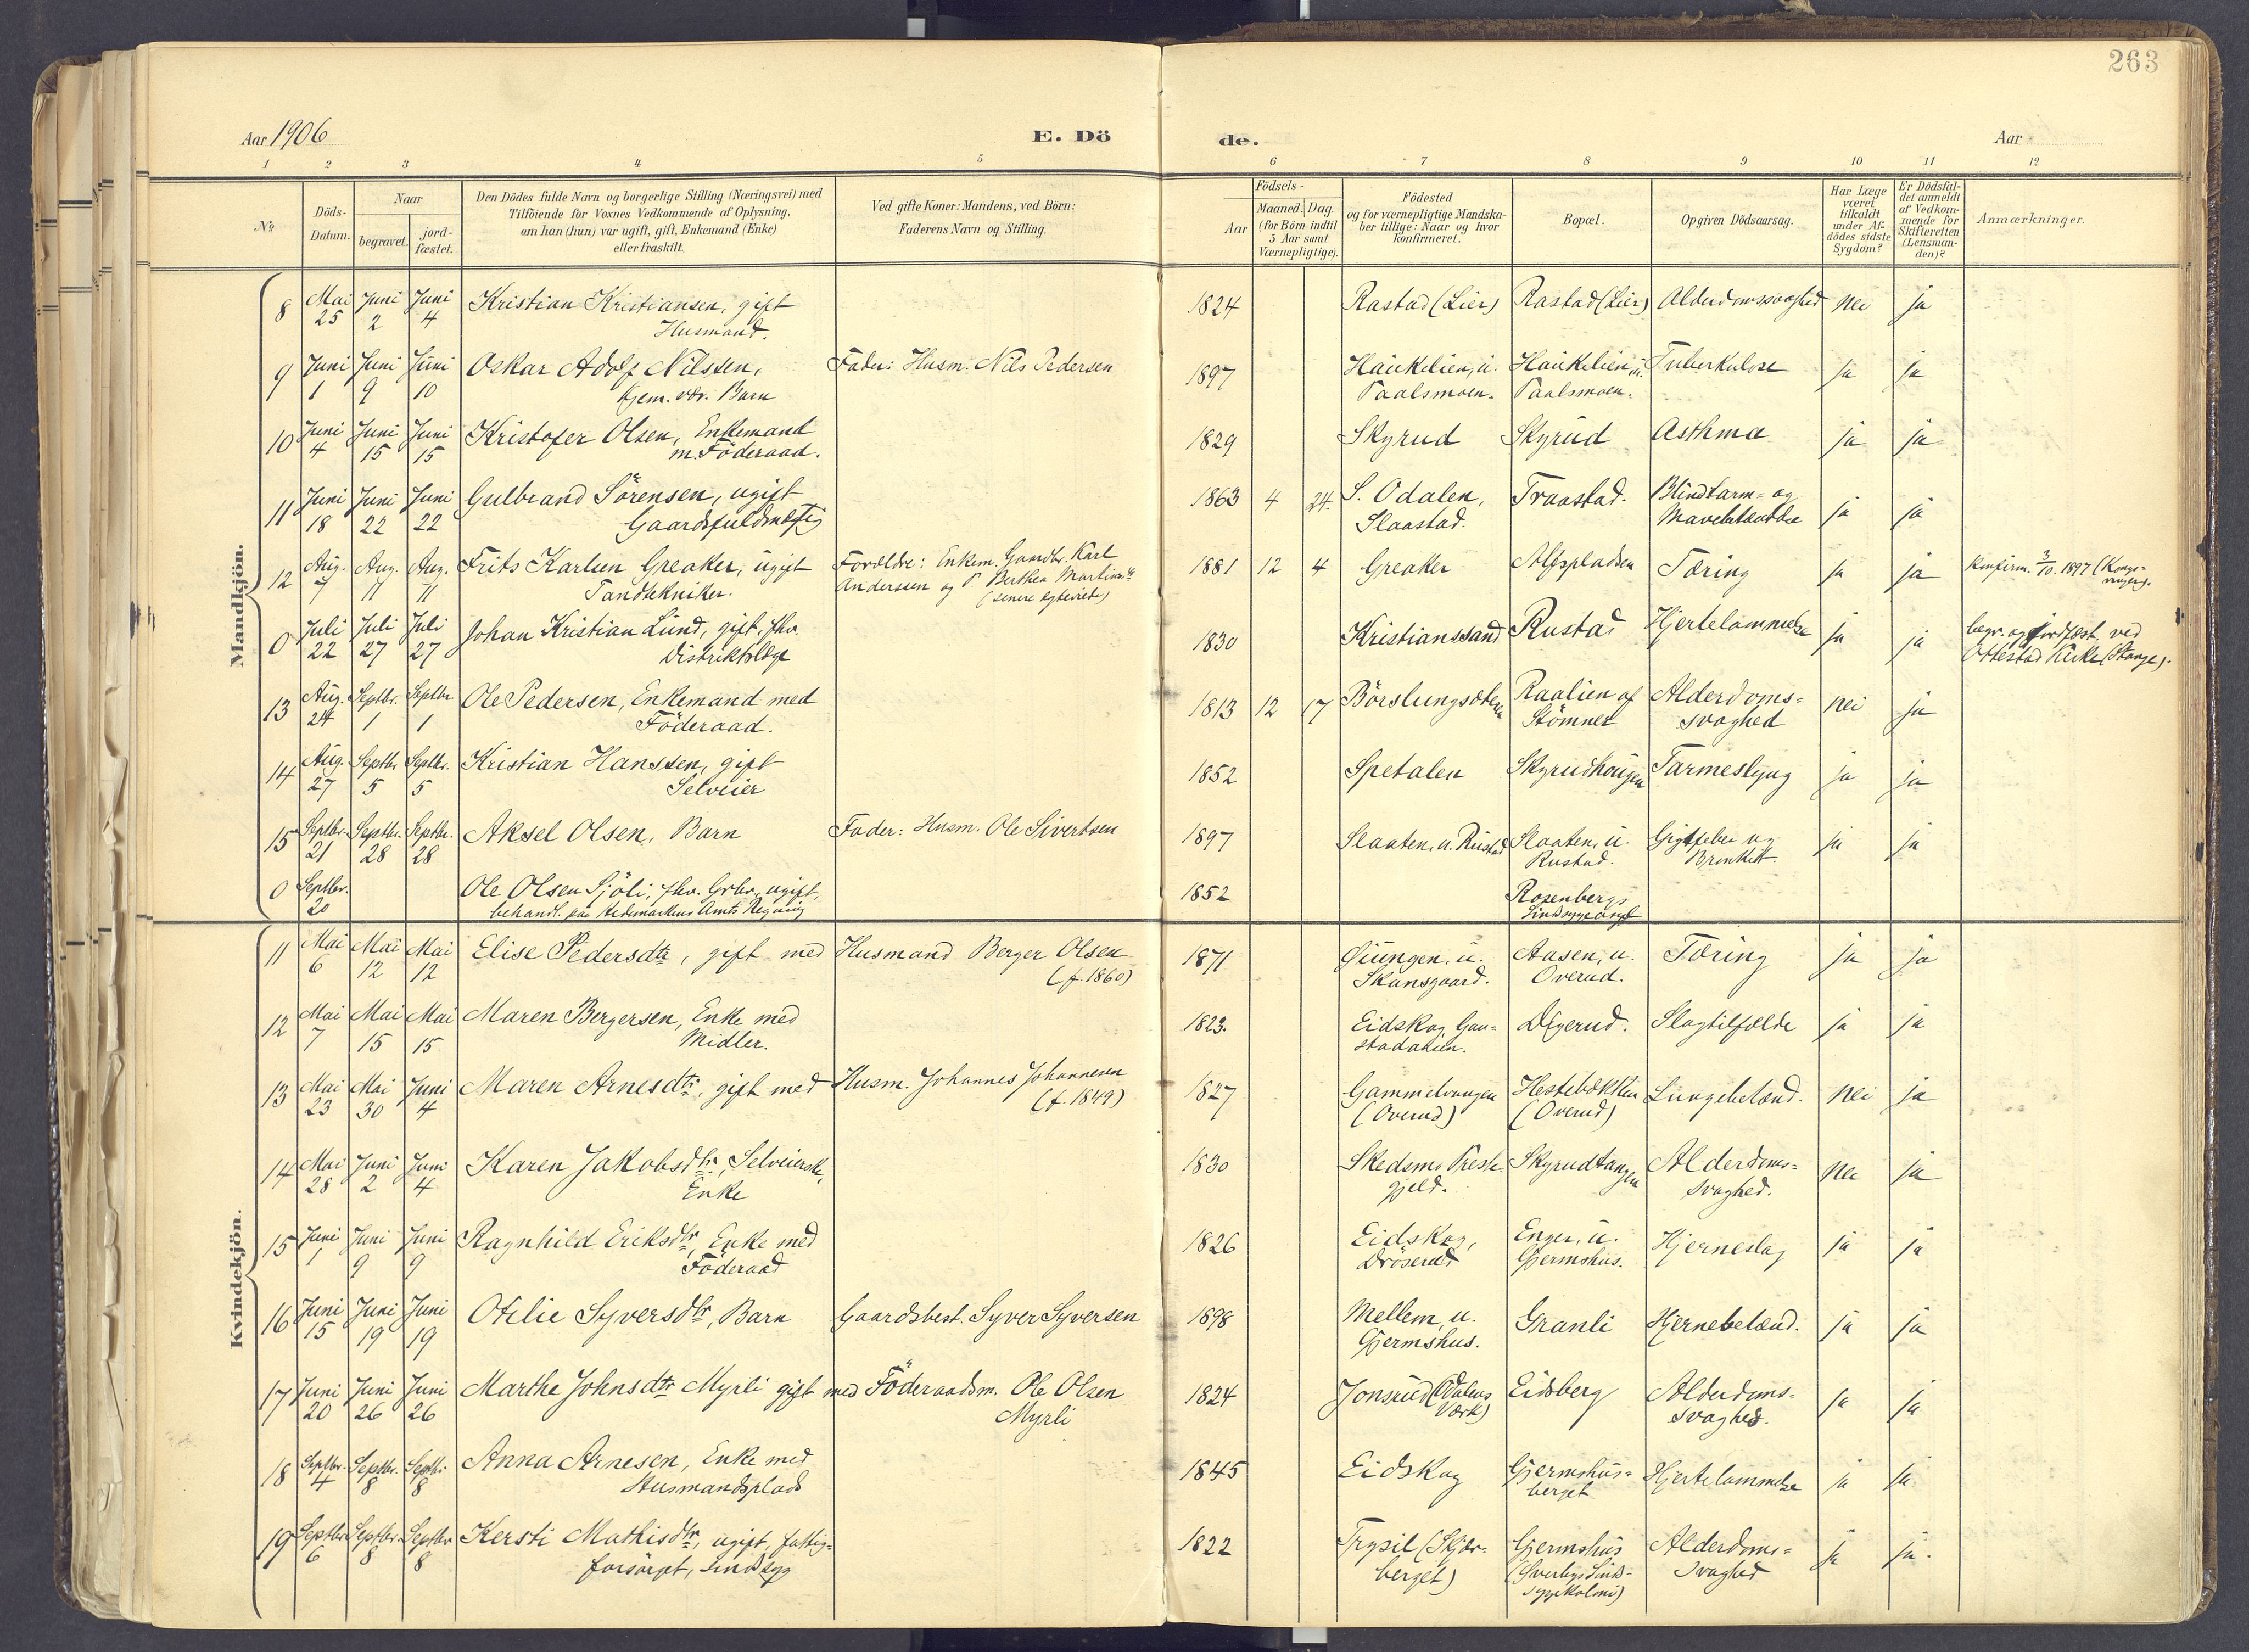 263
Aar 1906
E. Dö
de.
Aar
1 2 3 4 5 6 7 8 9 10 11 12
No
Döds-
Datum.
Naar
begravet.
jord-
fæstet.
Den Dödes fulde Navn og borgerlige Stilling (Næringsvei) med
Tilföiende for Voxnes Vedkommende af Oplysning,
om han (hun) var ugift, gift, Enkemand (Enke)
eller fraskilt.
Ved gifte Koner: Mandens, ved Börn:
Faderens Navn og Stilling.
Födsels-
Aar
Maaned.
Dag.
(for Börn indtil
5 Aar samt
Værnepligtige).
Födested
og for værnepligtige Mandska-
ber tillige: Naar og hvor
konfirmeret.
Bopæl.
Opgiven Dödsaarsag.
Har Læge
været
tilkaldt
under Af-
dödes sidste
Sygdom?
Er Dödsfal-
det anmeldt
af Vedkom-
mende for
Skifteretten
(Lensman-
den)?
Anmærkninger.
Mandkjön.
8 Mai Juni Juni Kristian Kristiansen, gift 1824 Rastad (Lier) Rastad (Lier) Alderdomssvaghed nei ja
25 2 4 Husmand.
9 Juni Juni Juni Oskar Adolf Nilssen, Fader: Husm. Nils Pedersen 1897 Haukelien, u. Haukelien, u. Tuberkulose ja ja
1 9 10 hjem. vær. Barn Paalsmoen. Paalsmoen.
10 Juni Juni Juni Kristofer Olsen, Enkemand 1829 Skyrud Skyrud Asthma ja ja
4 15 15 m. Föderaad.
11 Juni Juni Juni Gulbrand Sörensen, ugift 1863 4 24. S. Odalen, Traastad. Blindtarm- og ja ja
18 22 22 Gaardsfuldmægtig Slaastad.
12 Aug. Aug. Aug. Frits Karlsen Greaker, ugift Forældre: Enkem. Gaardbr. Karl 1881 12 4 Greaker Tæring ja ja Konfirm. 3/10. 1897 (Kongs-
7 11 11 Tandtekniker. Anderssen og P. Berthea Martinsdtr vinger).
(senere egteviede)
0 Juli Juli Juli Johan Kristian Lund, gift, fhv. 1830 Kristianssand Rustad Hjertelammelse ja ja begr. og jordfæst. ved
22 27 27 Distriktslæge Ottestad Kirke (Stange).
13 Aug. Septbr. Septbr Ole Pedersen, Enkemand med 1813 12 17 Raalien af Alderdoms- nei ja
24 1 1 Föderaad. Stömner svaghed
14 Aug. Septbr Septbr. Kristian Hanssen, gift 1852 Spetalen Skyrudhaugen Tarmeslyng ja ja
27 5 5 Selveier
15 Septbr. Septbr. Septbr. Aksel Olsen, Barn Fader: Husm. Ole Sivertsen 1897 Slaaten, u. Rustad Slaaten, u. Gigtfeber og ja ja
21 28 28 Rustad. Bronkitt
0 Septbr. Ole Olsen Sjöli, fhv. Grbr., ugift, 1852 Rosenbergs
20 behandl. paa Hedemarkens Amts Regning Sindssygeasyl
Kvindekjön.
11 Mai Mai Mai Elise Pedersdtr, gift med Husmand Berger Olsen 1871 Aasen, u. Tæring ja ja
6 12 12 (f. 1860) Skansgaard. Overud.
12 Mai Mai Mai Maren Bergersen, Enke med 1823. Eidskog, Gau- Digerud. Slagtilfælde ja ja
7 15 15 Midler. stadaasen.
13 Mai Mai Juni Maren Arnesdtr, gift med Husm. Johannes Johannesen 1827 Gammelvangen Hestebækken Lungebetænd. nei ja
23 30 4 (f. 1849) (Overud) (Overud)
14 Mai Juni Juni Karen Jakobsdtr, Selveierske, 1830 Skedsmo Preste- Skyrudtangen Alderdoms- nei ja
28 2 4 Enke gjeld. svaghed.
15 Juni Juni Juni Ragnhild Eriksdtr, Enke med 1826 Eidskog, Enger, u. Hjerneslag ja ja
1 9 9 Föderaad Dröserud Gjermshus.
16 Juni Juni Juni Otilie Syversdtr, Barn Gaardsbest. Syver Syversen 1898 Mellem, u. Granli Hjernebetænd. ja ja
15 19 19 Gjermshus.
17 Juni Juni Juni Marthe Johnsdtr Myrli gift med Föderaadsm. Ole Olsen 1824 Jonsrud (Odalens Eidsberg Alderdoms- ja ja
20 26 26 Myrli Værk) svaghed.
18 Septbr. Septbr. Septbr. Anna Arnesen, Enke med 1845 Eidskog Gjermshus- Hjertelammelse ja ja
4 8 8 Husmandsplads berget
19 Septbr Septbr. Septbr Kersti Mathisdtr, ugift, fattig- 1822 Trysil (Skjær- Gjermshus Alderdoms- ja ja.
6 8 8 forsörget, sindssyg berget) (Överbys Sinds- svaghed
sygekoloni)